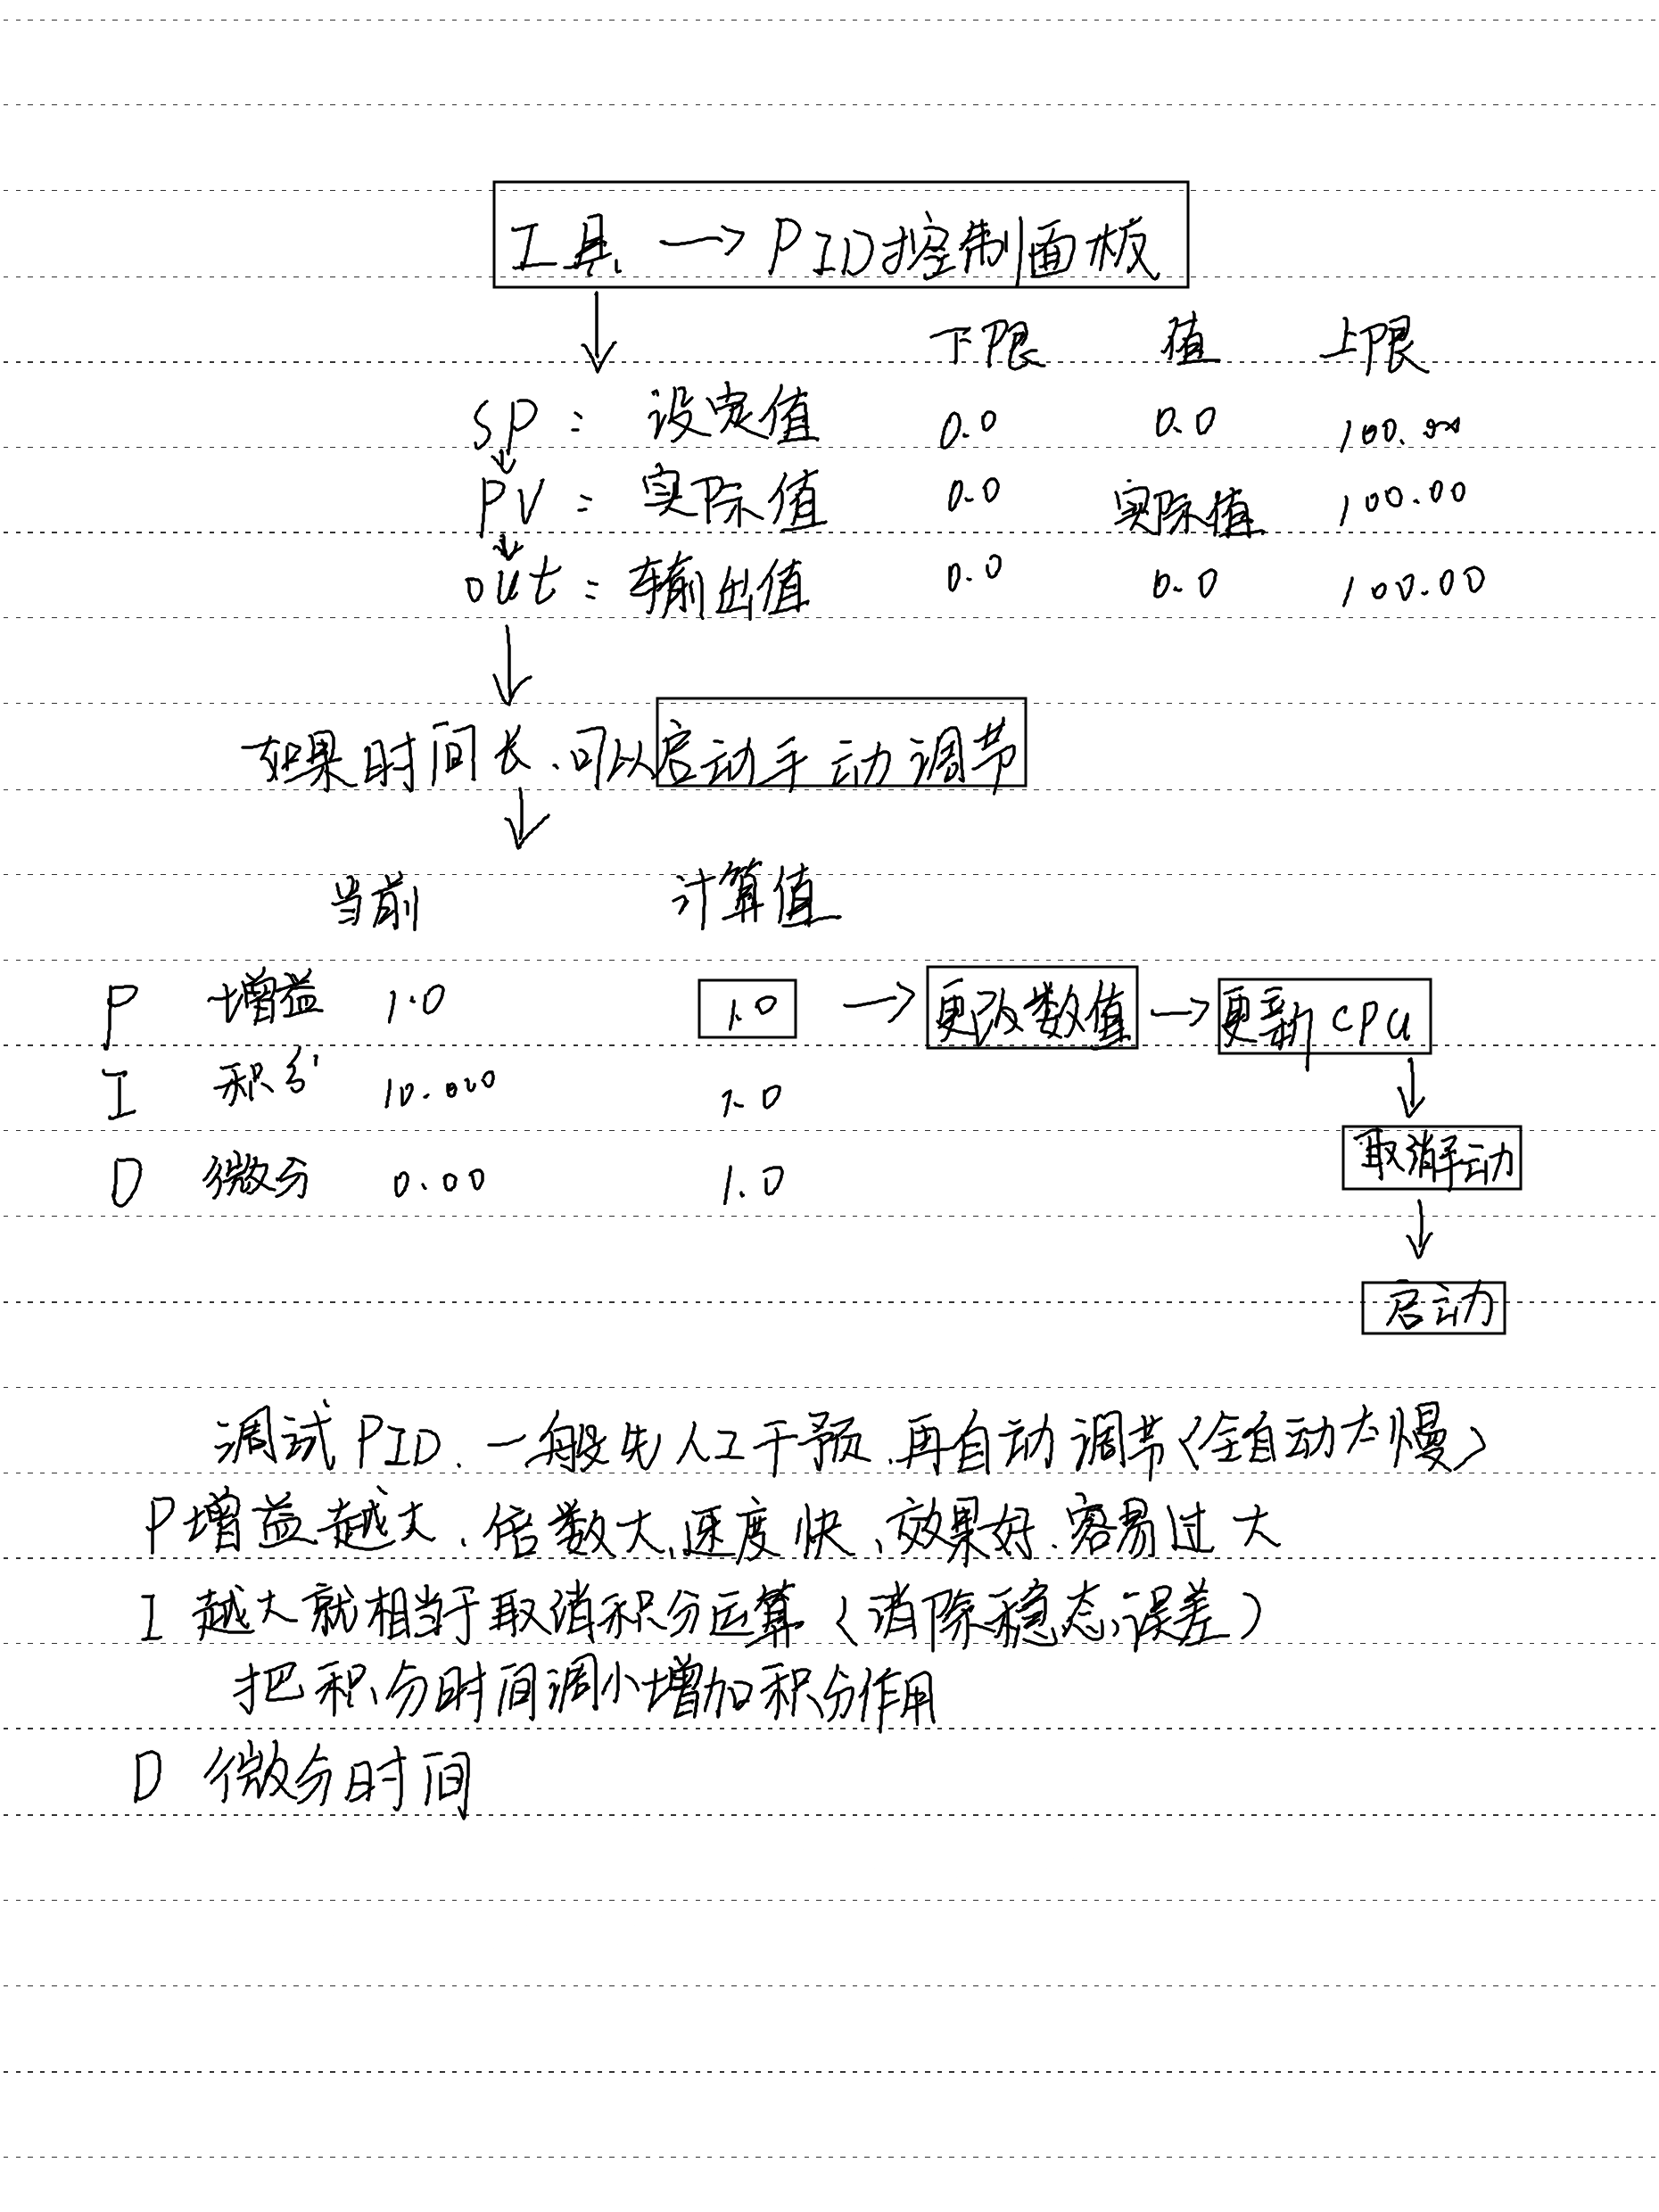 工具 → PID控制面板
下限 值 上限
SP： 设定值 0.0 0.0 100.00
PV： 实际值 0.0 实际值 100.00
out： 输出值 0.0 0.0 100.00
如果时间长、可以启动手动调节
当前 计算值
P 增益 1.0 1.0 → 更改数值 → 更新CPU
I 积分 10.000 1.0
D 微分 0.00 1.0
取消手动
启动
调试PID、一般先人工干预、再自动调节（全自动太慢）
P增益越大、倍数大、速度快、效果好、容易过大
I 越大就相当于取消积分运算（消除稳态误差）
把积分时间调小增加积分作用
D 微分时间